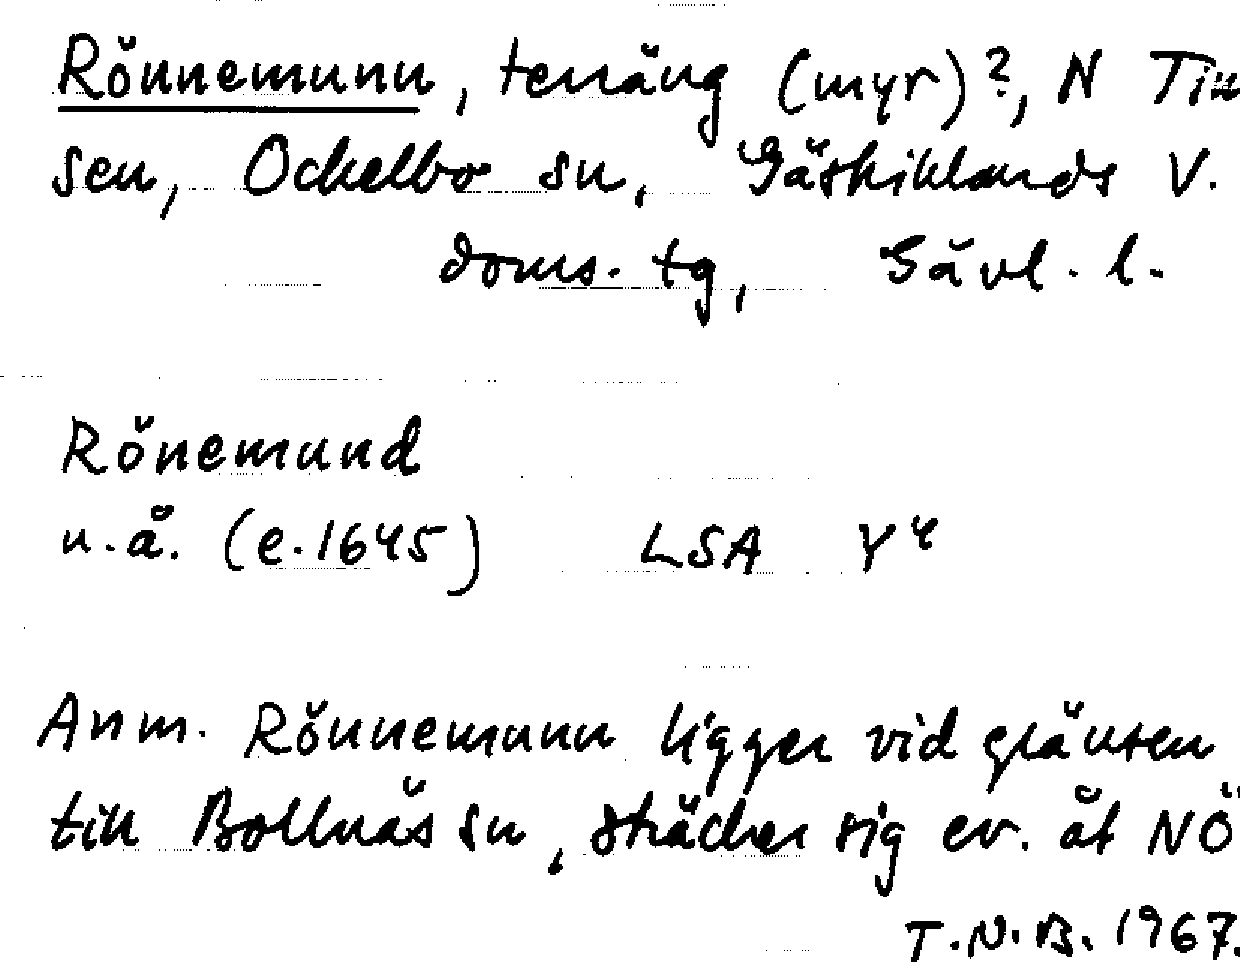 Rönnemunn, terräng (myr)?, N Tin
sen, Ockelbo sn, Gästriklands V.
doms. tg, Gävl. l.
Rönemund
u.å. (e. 1645) LSA Y4
Anm. Rönnemunn ligger vid gränsen
till Bollnäs sn, sträcker sig ev. åt NÖ
T.N.B. 1967.